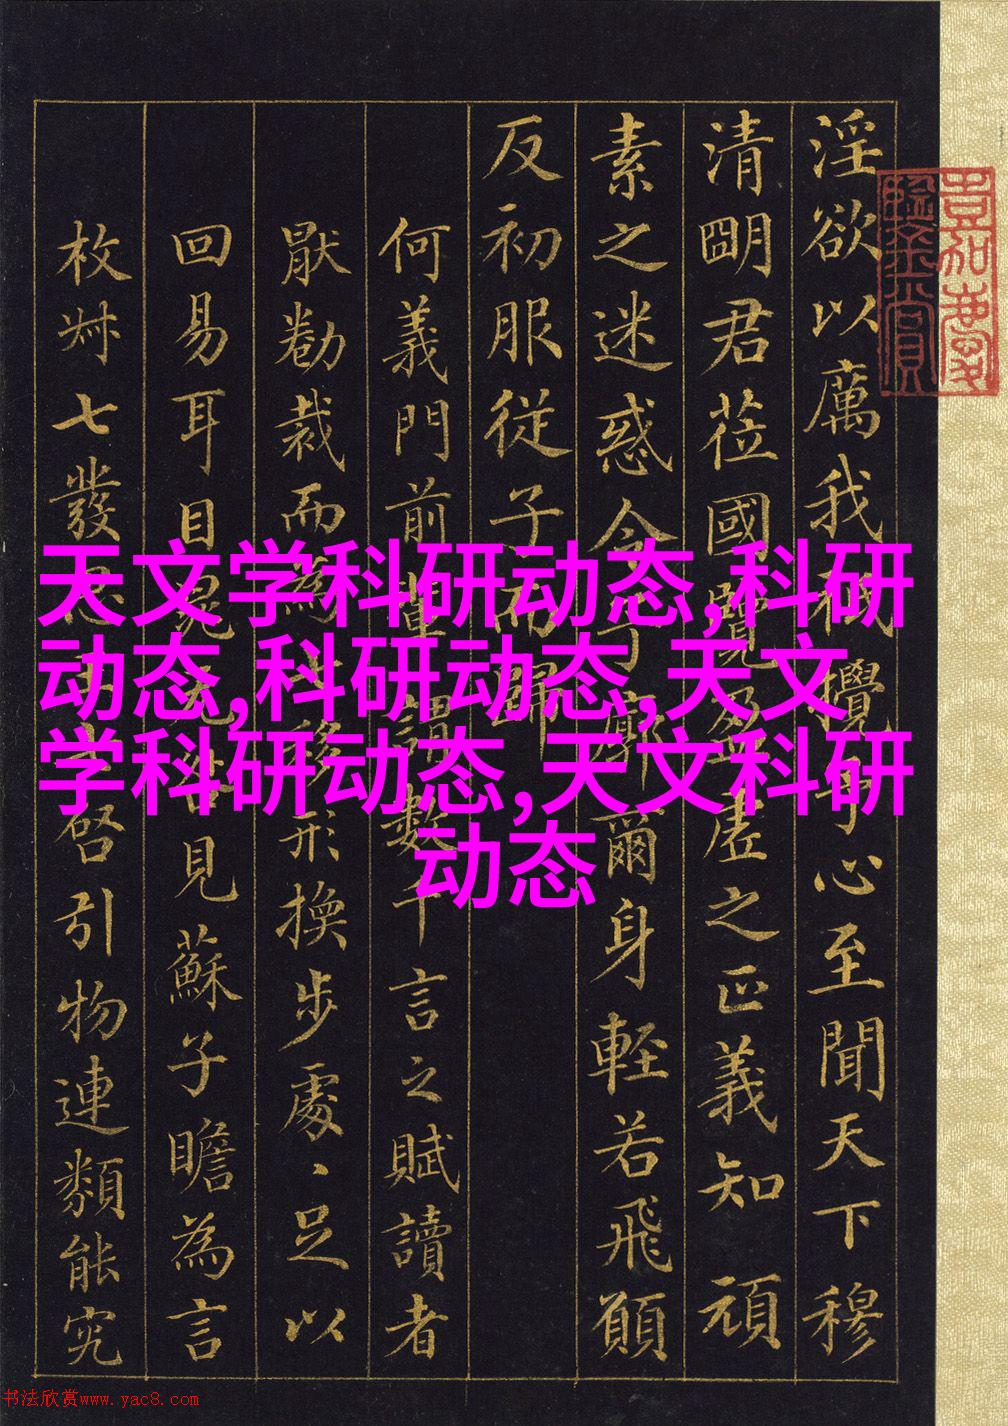 淫欲以厲我攪予心至聞天下穆
清眀君莅國覽盈虛之正義知頑
素之迷惑令廓爾身輕若飛願
反初服從子而歸
何義門前輩謂數千言之賦讀者
厭勌裁而為形換步處、足以
回易耳目見蘇子瞻為言
枚叔七發啓引物連類能究
嘉慶
鑒賞
天文学科研动态,科研
动态,科研动态,天文
学科研动态,天文科研
动态
书法欣赏www.yac8.com